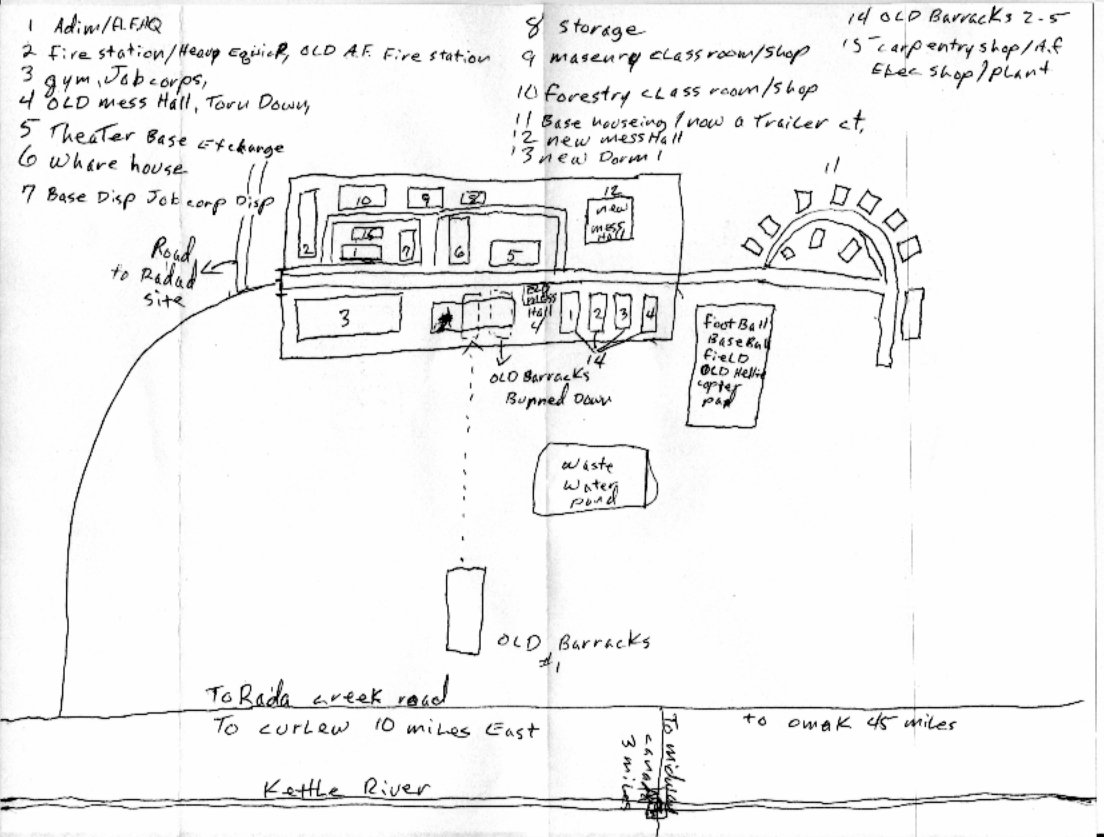 1 Adim/A.F.HQ
2 fire station/Heavy Equick, OLD A.F. Fire station
3 gym, Jobcorps,
4 OLD mess Hall, Torn Down,
5 Theater Base Exchange
6 Whare house
7 Base Disp Jobcorp Disp
8 Storage
9 masenry classroom/shop
10 forestry class room/shop
11 Base houseing/now a Trailer ct,
12 new messHall
13 new Dorm 1
14 OLD Barracks 2-5
15 carpentry shop/A.f
Elec shop/plant
Road
to Radad
site
2
10
9
8
15
1
7
6
5
12
new
mess
Hall
11
3
OLD
mess
Hall
4
1
2
3
4
14
OLD Barracks
Bunned Down
footBall
BaseBall
fieLD
OLD Hellie
copter
pad
waste
water
pond
OLD Barracks
#1
To
creek road
To curlew 10 miles East
to omak 45 miles
To
3 miles
Kettle River